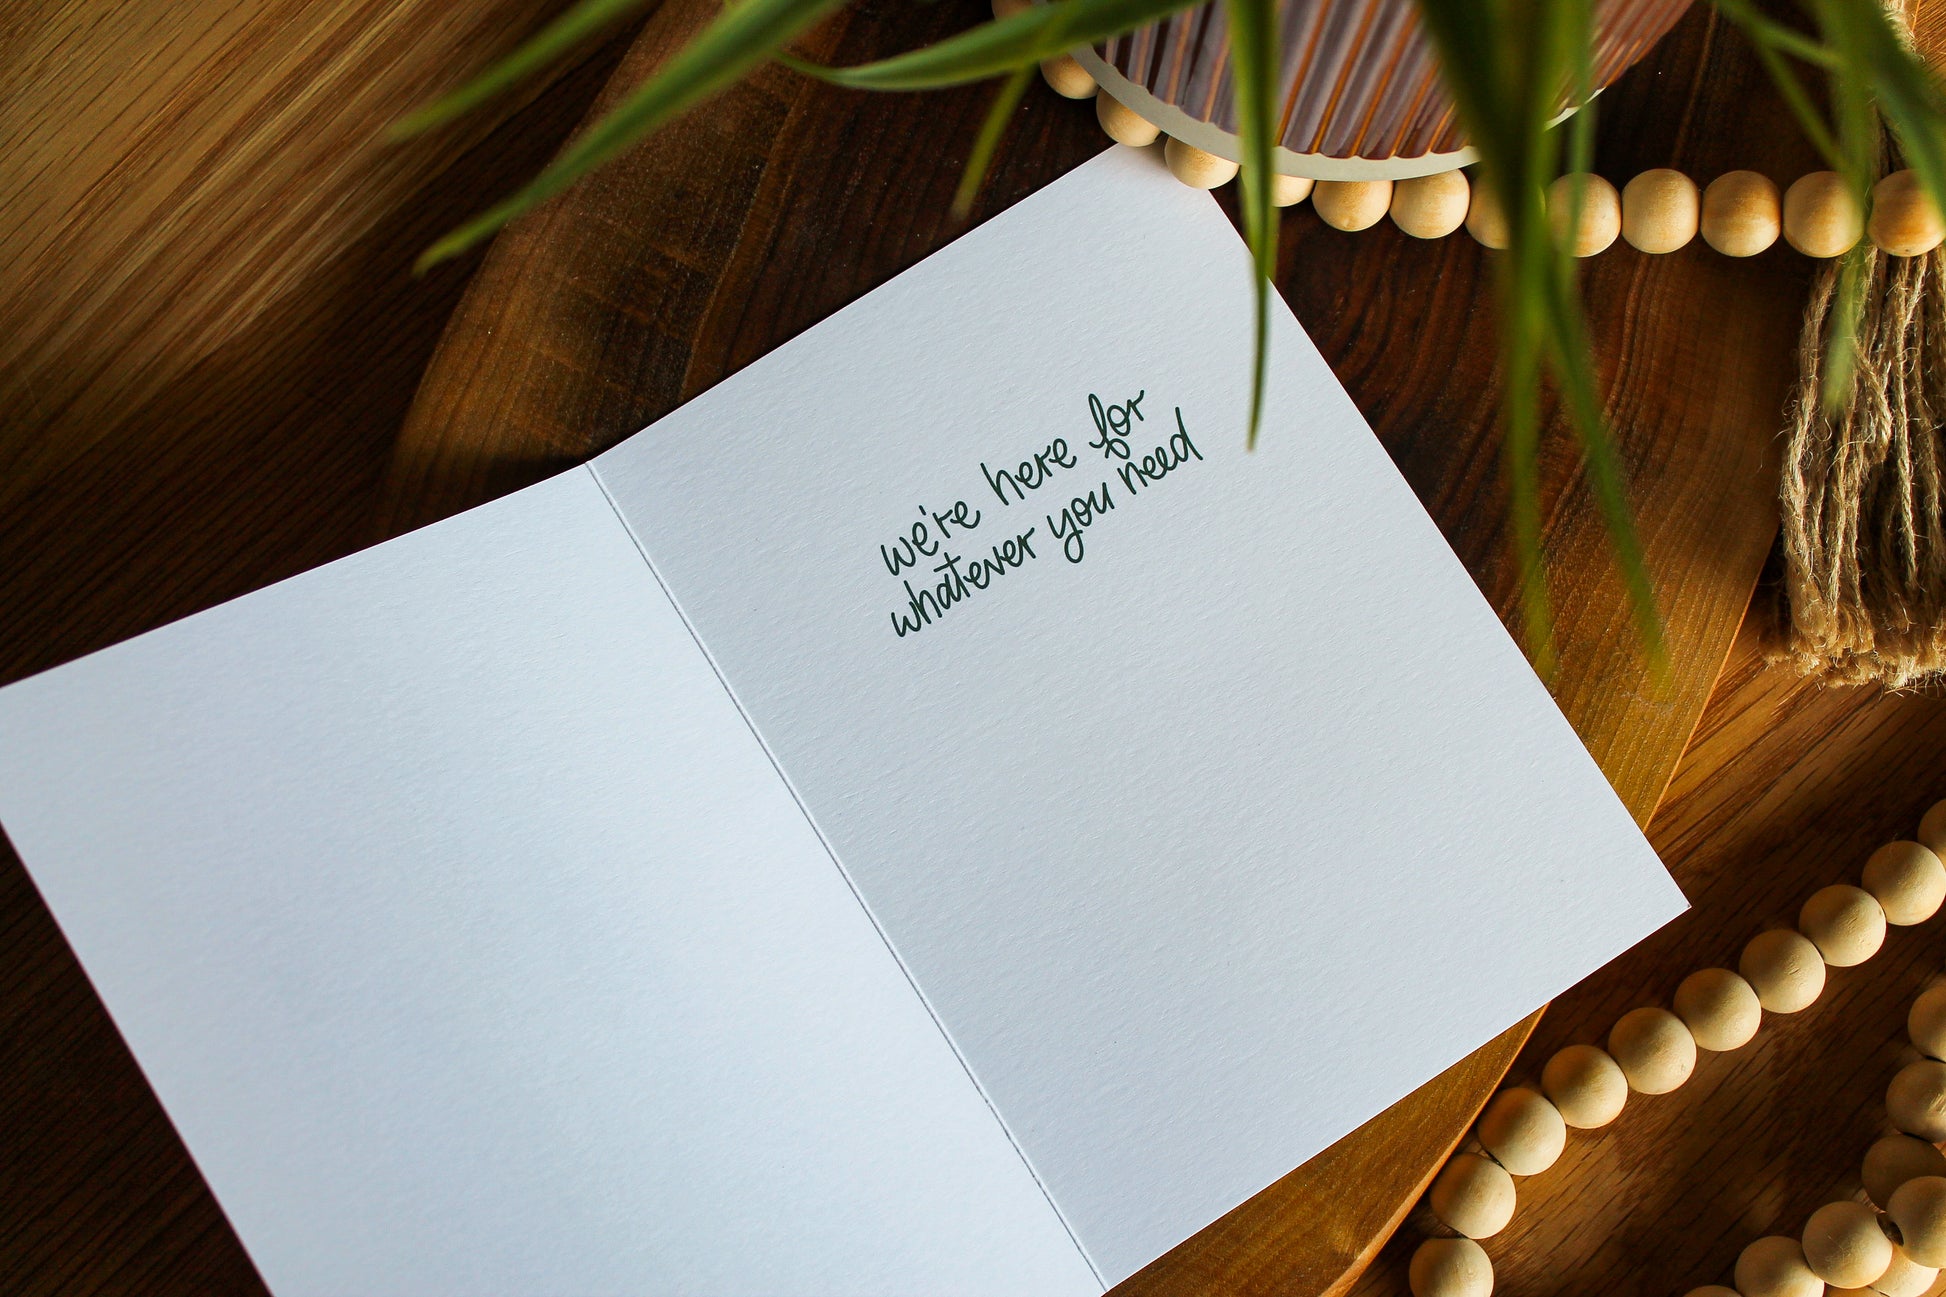 we're here for
whatever you need